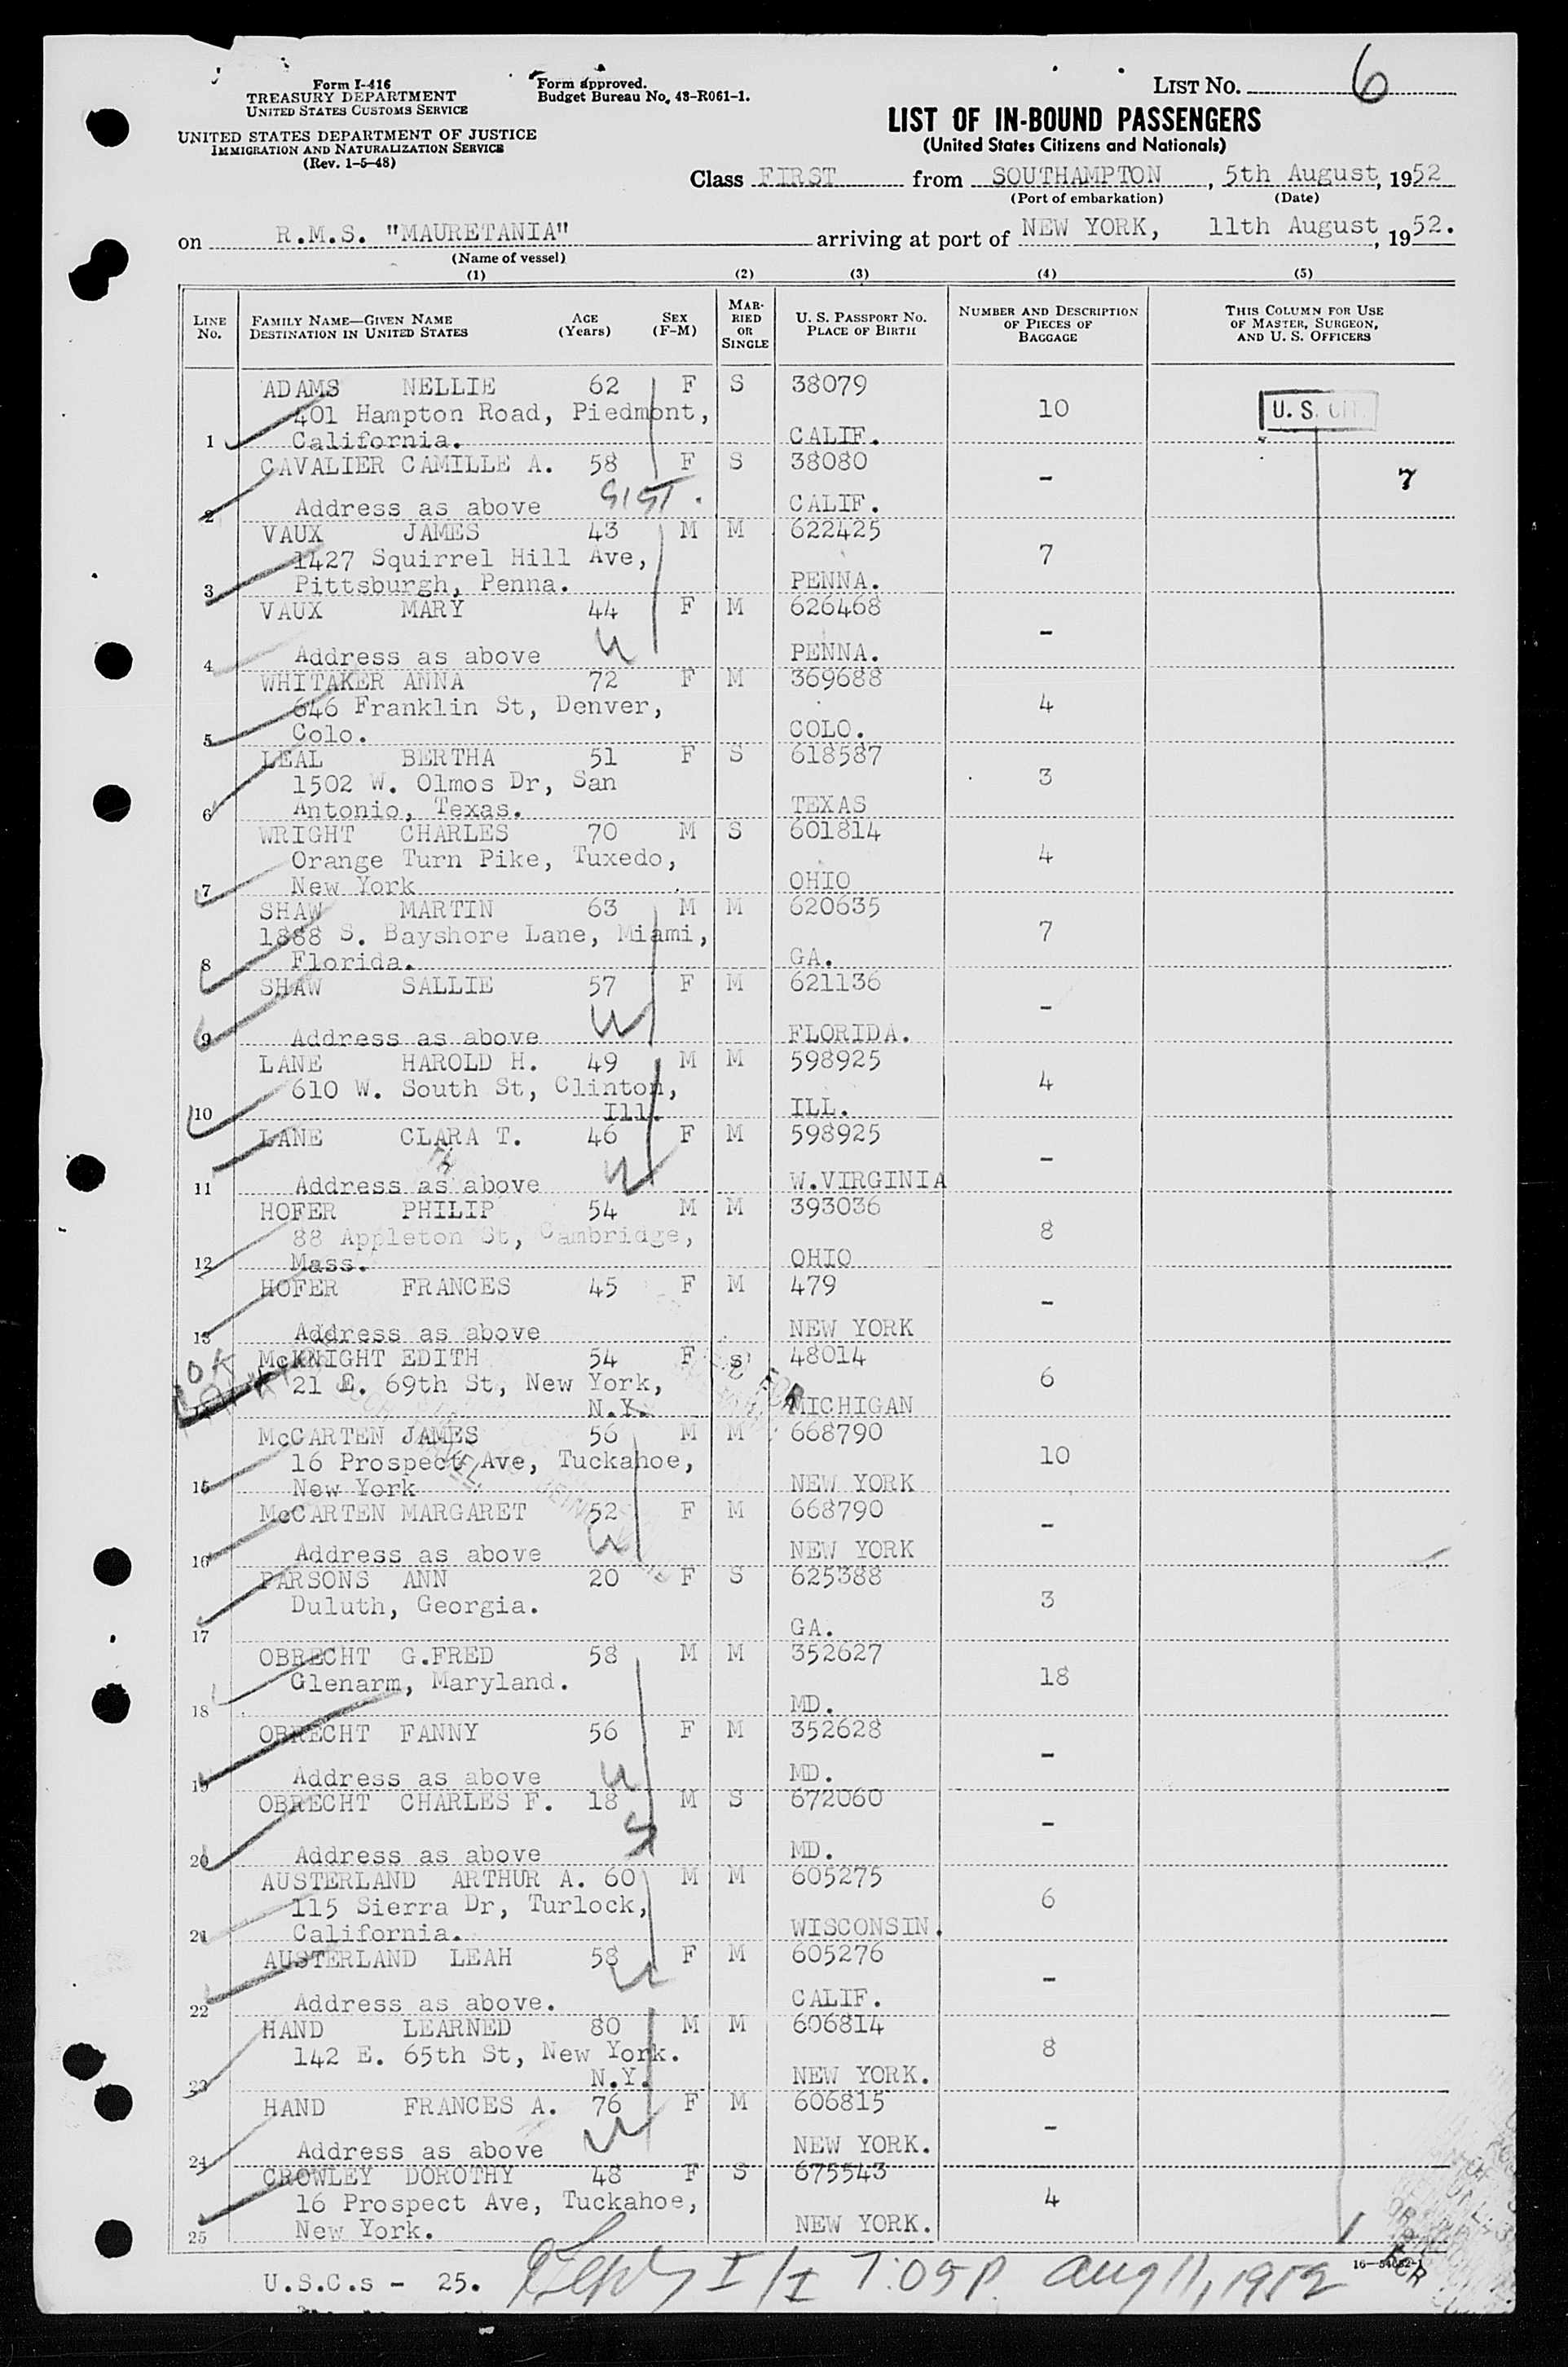 Form I-416
TREASURY DEPARTMENT
UNITED STATES CUSTOMS SERVICE
UNITED STATES DEPARTMENT OF JUSTICE
IMMIGRATION AND NATURALIZATION SERVICE
(Rev. 1-5-48)
Form approved.
Budget Bureau No. 43-R061-1.
LIST NO. 6
LIST OF IN-BOUND PASSENGERS
(United States Citizens and Nationals)
Class FIRST from SOUTHAMPTON, 5th August, 1952
(Port of embarkation) (Date)
on R.M.S. "MAURETANIA" arriving at port of NEW YORK, 11th August, 1952.
(Name of vessel)
(1) (2) (3) (4) (5)
LINE NO. FAMILY NAME—GIVEN NAME DESTINATION IN UNITED STATES AGE (Years) SEX (F-M) MARRIED OR SINGLE U. S. PASSPORT NO. PLACE OF BIRTH NUMBER AND DESCRIPTION OF PIECES OF BAGGAGE THIS COLUMN FOR USE OF MASTER, SURGEON, AND U. S. OFFICERS
ADAMS NELLIE 62 F S 38079
401 Hampton Road, Piedmont, 10 U. S. CIT
1 California. CALIF.
CAVALIER CAMILLE A. 58 F S 38080
- 7
2 Address as above CALIF.
VAUX JAMES 43 M M 622425
1427 Squirrel Hill Ave, 7
3 Pittsburgh, Penna. PENNA.
VAUX MARY 44 F M 626468
-
4 Address as above PENNA.
WHITAKER ANNA 72 F M 369688
646 Franklin St, Denver, 4
5 Colo. COLO.
LEAL BERTHA 51 F S 618587
1502 W. Olmos Dr, San 3
6 Antonio, Texas. TEXAS
WRIGHT CHARLES 70 M S 601814
Orange Turn Pike, Tuxedo, 4
7 New York OHIO
SHAW MARTIN 63 M M 620635
1888 S. Bayshore Lane, Miami, 7
8 Florida. GA.
SHAW SALLIE 57 F M 621136
-
9 Address as above FLORIDA.
LANE HAROLD H. 49 M M 598925
610 W. South St, Clinton, 4
10 Ill. ILL.
LANE CLARA T. 46 F M 598925
-
11 Address as above W.VIRGINIA
HOFER PHILIP 54 M M 393036
88 Appleton St, Cambridge, 8
12 Mass. OHIO
HOFER FRANCES 45 F M 479
-
13 Address as above NEW YORK
McKNIGHT EDITH 54 F S 48014
OK 21 E. 69th St, New York, 6
N.Y. MICHIGAN
McCARTEN JAMES 56 M M 668790
16 Prospect Ave, Tuckahoe, 10
15 New York NEW YORK
McCARTEN MARGARET 52 F M 668790
-
16 Address as above NEW YORK
PARSONS ANN 20 F S 625388
Duluth, Georgia. 3
17 GA.
OBRECHT G.FRED 58 M M 352627
Glenarm, Maryland. 18
18 MD.
OBRECHT FANNY 56 F M 352628
-
19 Address as above MD.
OBRECHT CHARLES F. 18 M S 672060
-
20 Address as above MD.
AUSTERLAND ARTHUR A. 60 M M 605275
115 Sierra Dr, Turlock, 6
21 California. WISCONSIN.
AUSTERLAND LEAH 58 F M 605276
-
22 Address as above. CALIF.
HAND LEARNED 80 M M 606814
142 E. 65th St, New York. 8
23 N.Y. NEW YORK.
HAND FRANCES A. 76 F M 606815
-
24 Address as above NEW YORK.
CROWLEY DOROTHY 48 F S 675543
16 Prospect Ave, Tuckahoe, 4
25 New York. NEW YORK.
U.S.C.s - 25. I/I 7:05P. Aug 11, 1952